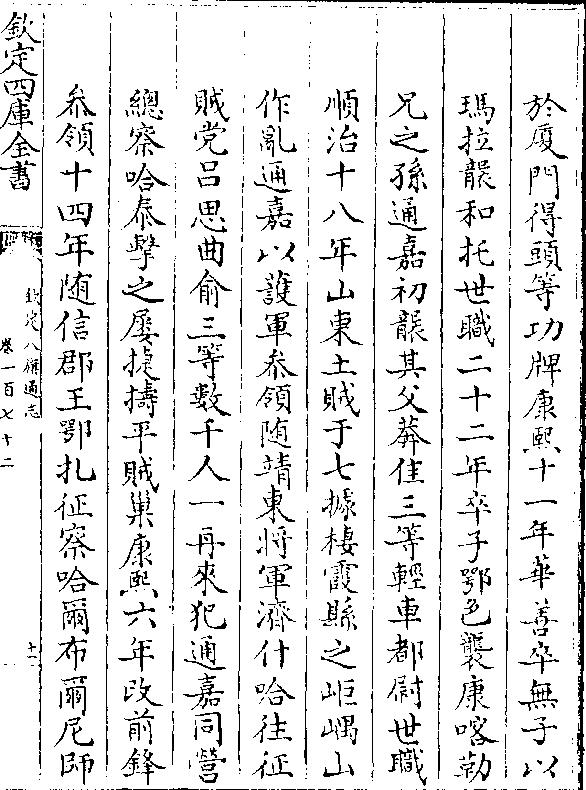 於廈門得頭等功牌康熙十一年華善卒無子以
瑪拉襲和托世職二十二年卒子鄂色襲康喀勒
兄之孫通嘉初襲其父莽佳三等輕車都尉世職
順治十八年山東土賊于七據棲霞縣之岠嵎山
作亂通嘉以護軍叅領随靖東將軍濟什哈往征
賊党吕思曲俞三等數千人一再來犯通嘉同營
總察哈泰擊之屡㨗擣平賊巢康熙六年改前鋒
叅領十四年随信郡王鄂扎征察哈爾布爾尼師
欽定四庫全書
欽定八旗通志
卷一百七十二
十一